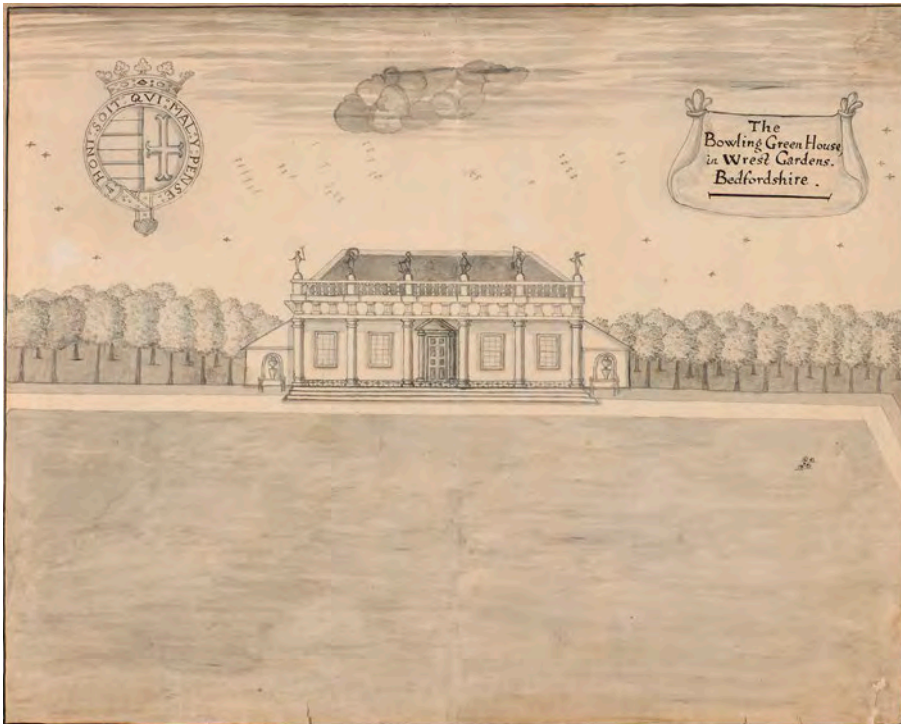 HONI·SOIT·QVI·MAL·Y·PENSE·
The
Bowling Green House
in Wrest Gardens.
Bedfordshire.